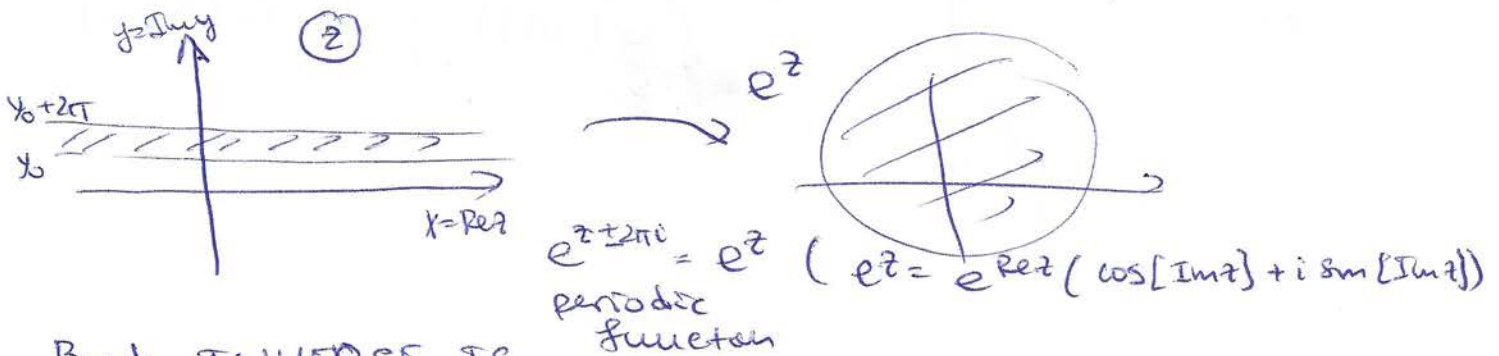 y=Imy
(z)
y₀+2π
y₀
x=Rez
e^z
e^{z±2πi} = e^z ( e^z = e^{Rez} ( cos[Imz] + i sin[Imz])
periodic
function